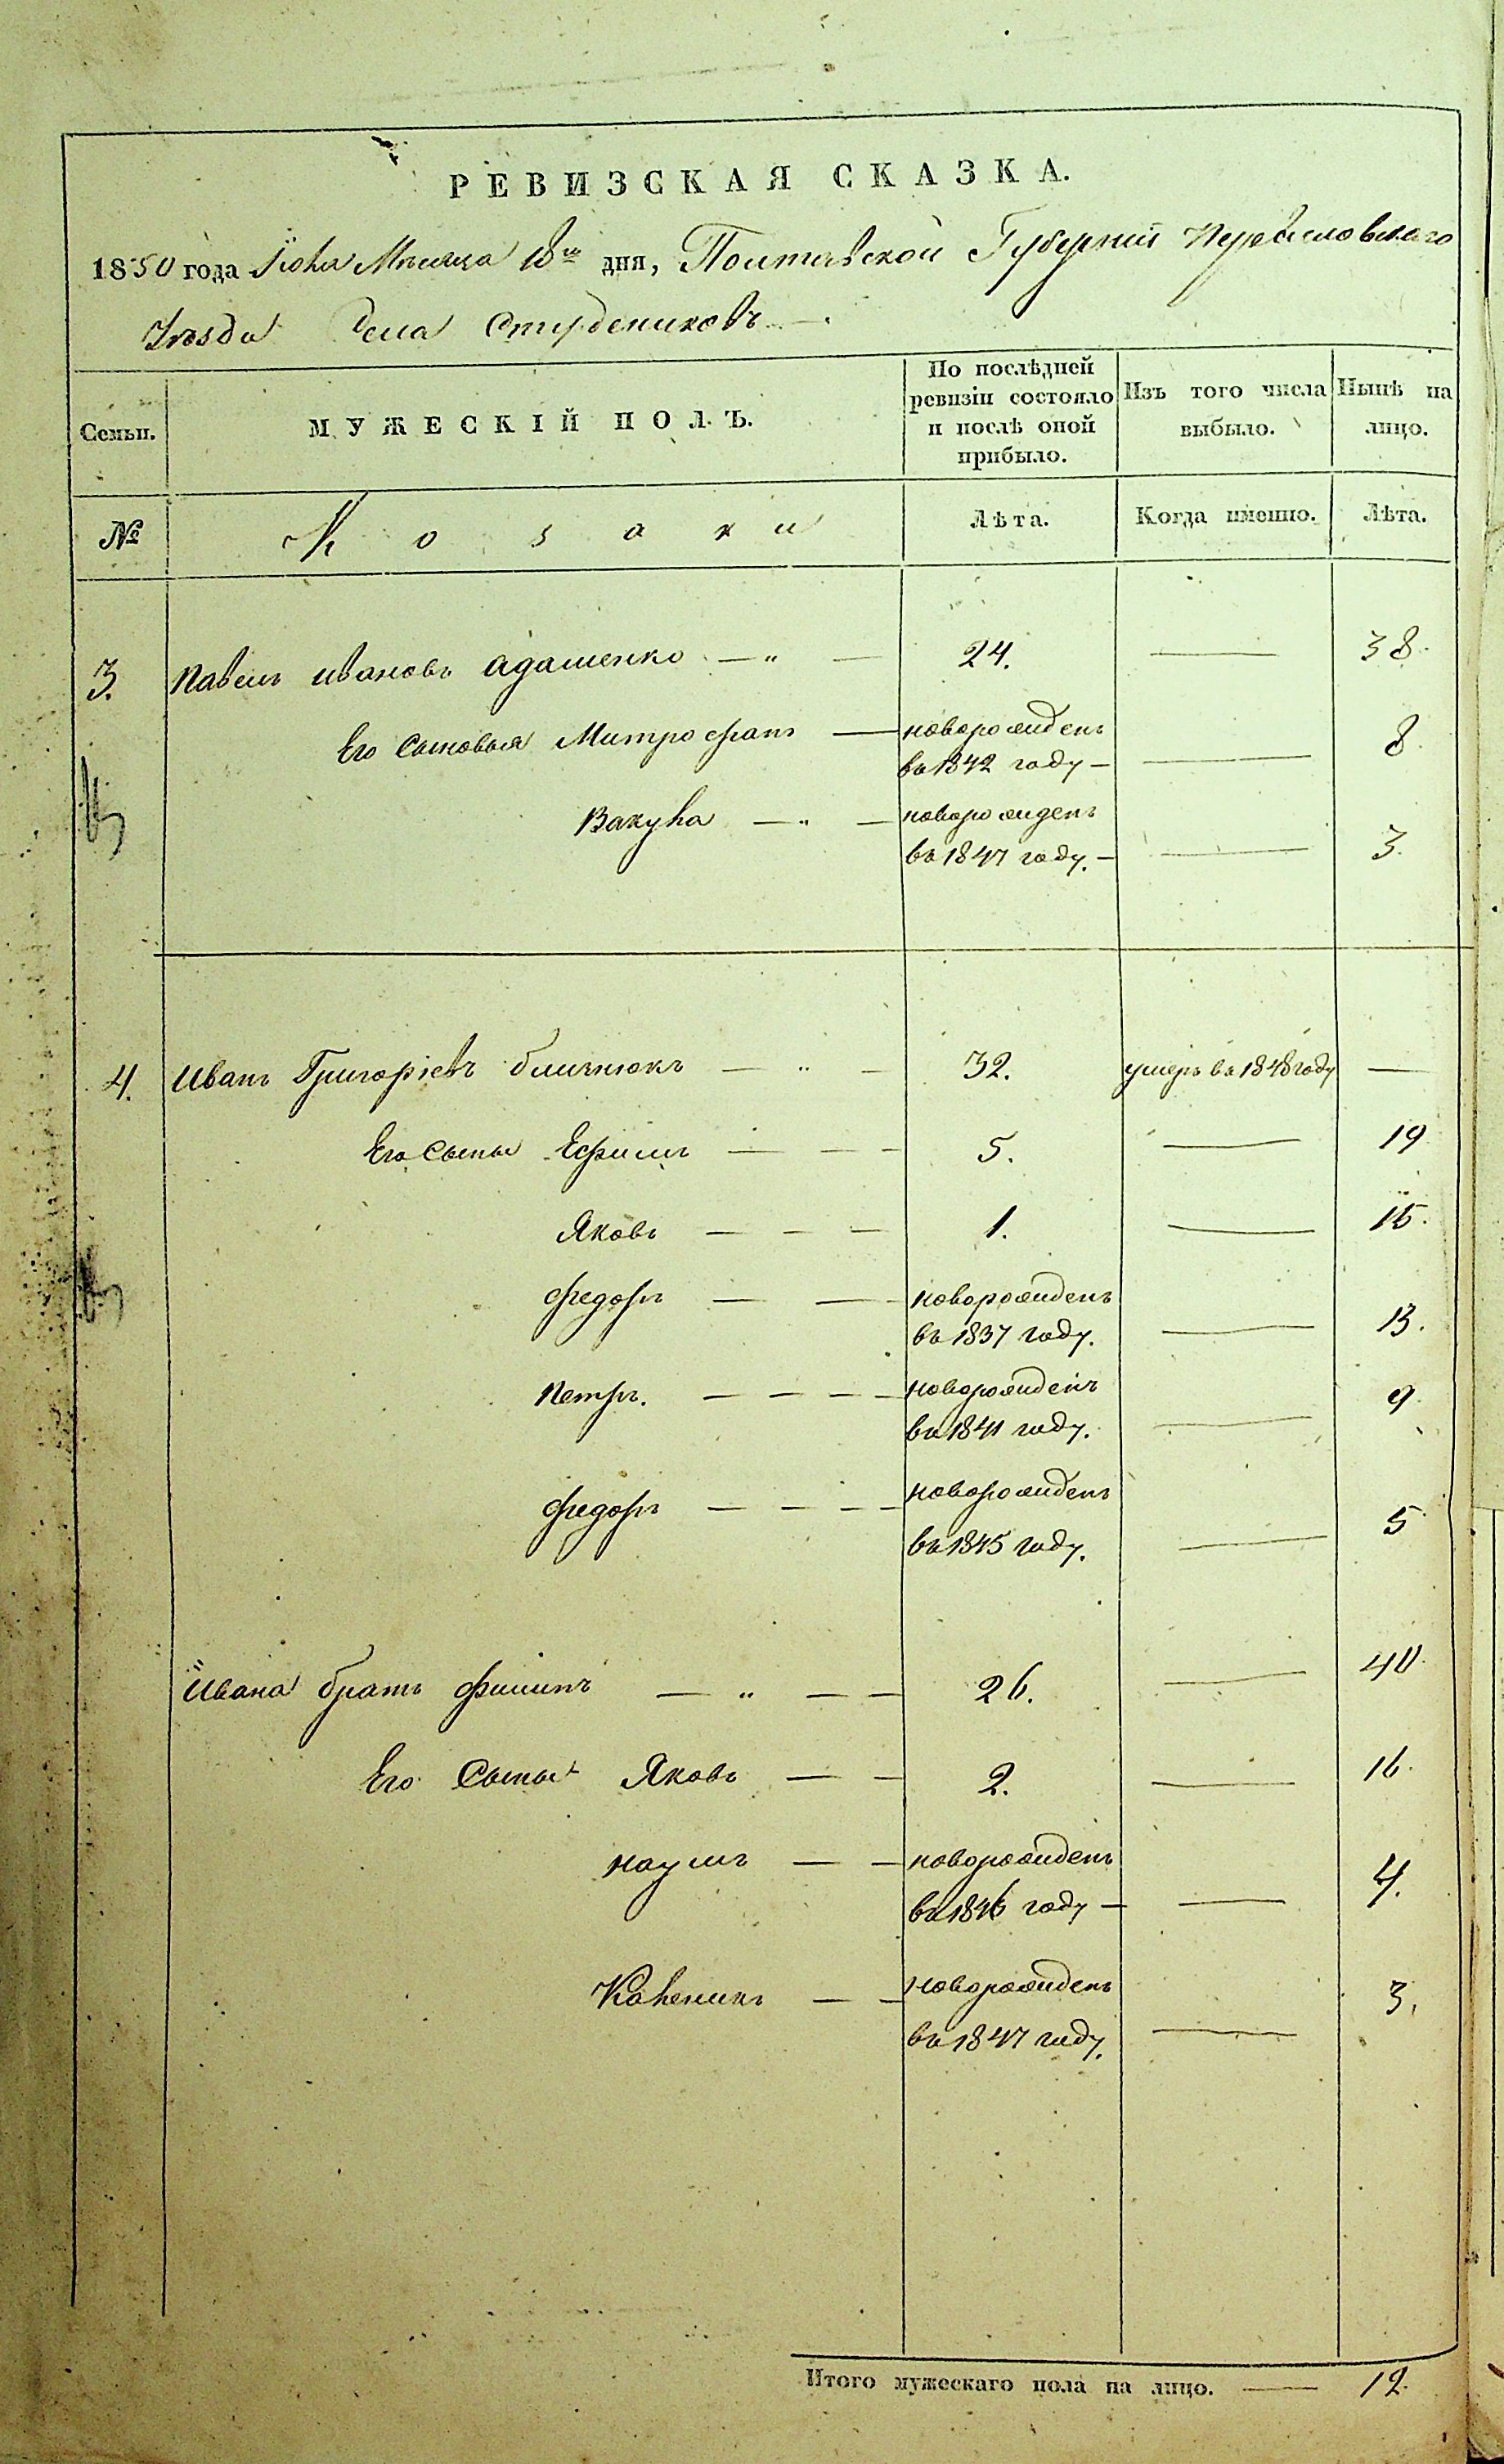 РЕВИЗСКАЯ СКАЗКА.
1850 года Июня Месяца 18го дня, Полтавской Губернии Переяславскаго
Уезда Села Студениковъ
Семьи. МУЖЕСКІЙ ПОЛЪ. По послѣдней ревизіи состояло и послѣ оной прибыло. Изъ того числа выбыло. Нынѣ на лицо.
№ Козаки Лѣта. Когда именно. Лѣта.
3. Павелъ Ивановъ Адаменко — „ — 24. — 38.
Его Сыновья Митрофанъ — новорожденъ
въ 1842 году — — 8.
Вакула — „ — новорожденъ
въ 1847 году. — — 3.
4. Иванъ Григоріевъ Близнюкъ — „ — 32. умеръ въ 1848 году —
Его Сыны Ефимъ — — — 5. — 19
Яковъ — — — 1. — 15.
Федоръ — — новорожденъ
въ 1837 году. — 13.
Петръ. — — — — новорожденъ
въ 1841 году. — 9.
Федоръ — — — — новорожденъ
въ 1845 году. — 5
Ивана братъ Филипъ — „ — — 26. — 40.
Его Сыны Яковъ — — 2. — 16.
Наумъ — — новорожденъ
въ 1846 году — — 4.
— — новорожденъ
въ 1847 году. — 3.
Итого мужескаго пола на лицо. — 12.